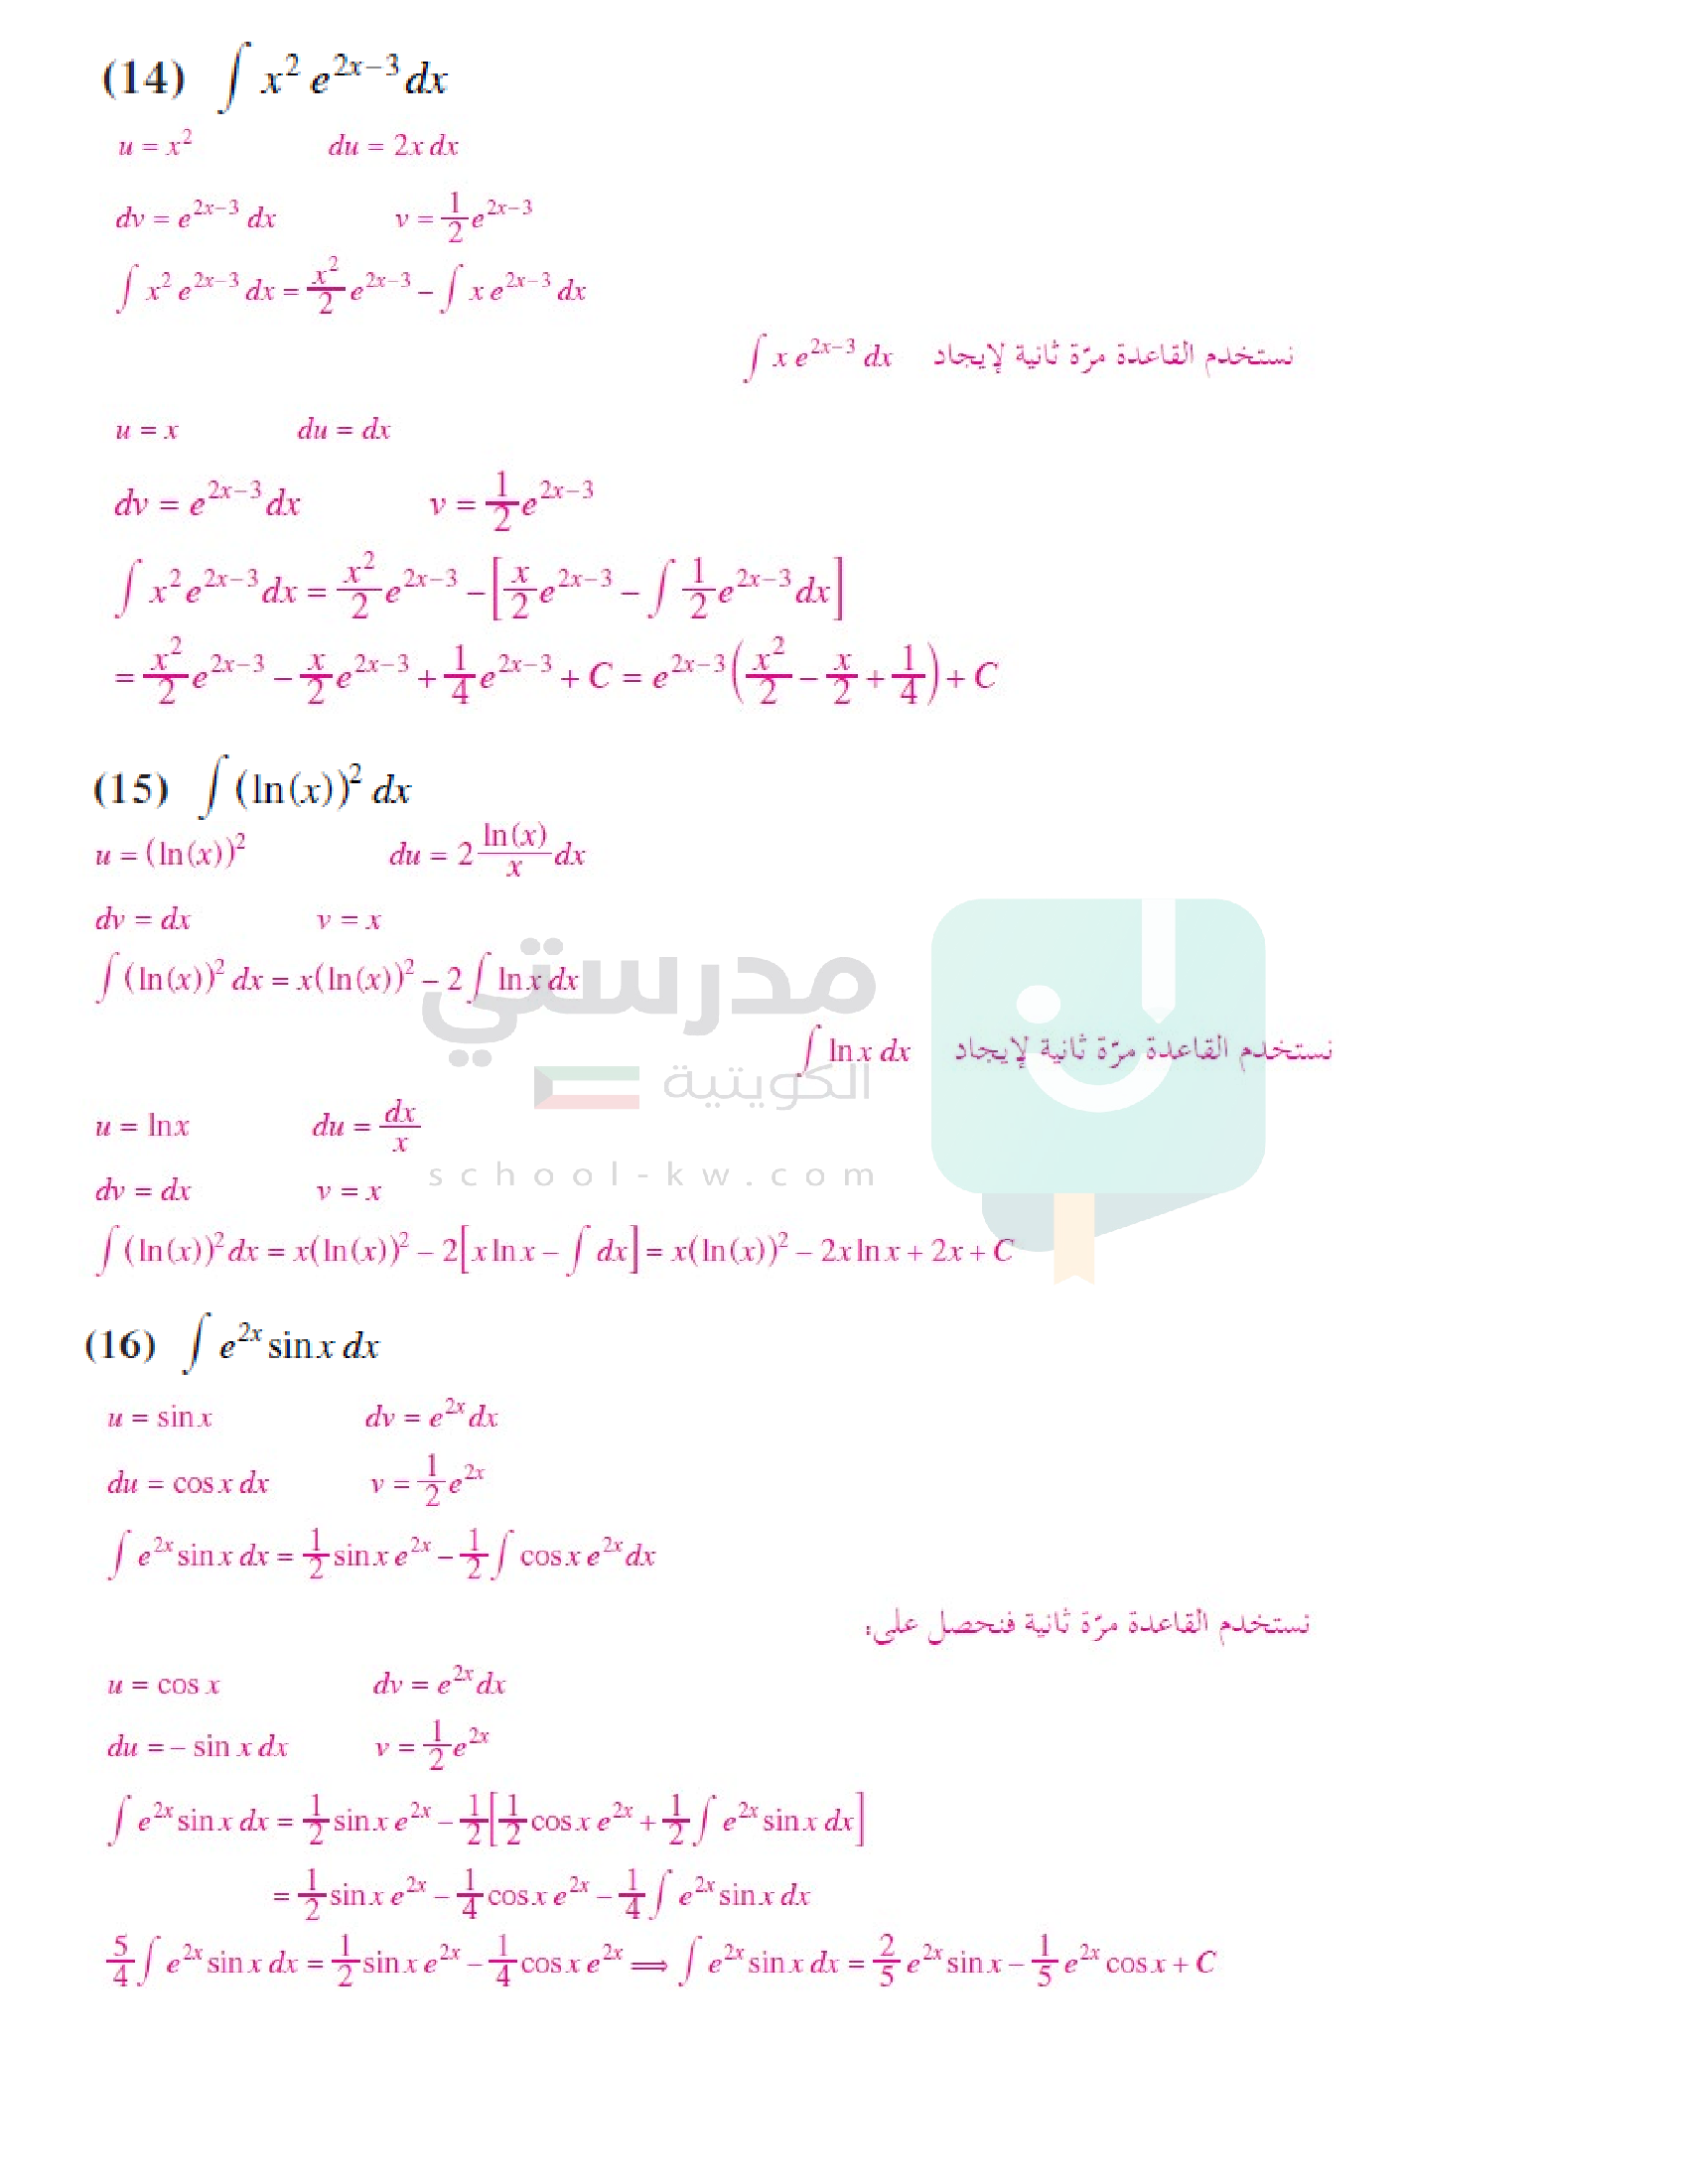 (14) ∫ x² e^{2x−3} dx
u = x² du = 2x dx
dv = e^{2x−3} dx v = \frac{1}{2} e^{2x−3}
∫ x² e^{2x−3} dx = \frac{x²}{2} e^{2x−3} − ∫ x e^{2x−3} dx
نستخدم القاعدة مرّة ثانية لإيجاد ∫ x e^{2x−3} dx
u = x du = dx
dv = e^{2x−3} dx v = \frac{1}{2} e^{2x−3}
∫ x² e^{2x−3} dx = \frac{x²}{2} e^{2x−3} − [\frac{x}{2} e^{2x−3} − ∫ \frac{1}{2} e^{2x−3} dx]
= \frac{x²}{2} e^{2x−3} − \frac{x}{2} e^{2x−3} + \frac{1}{4} e^{2x−3} + C = e^{2x−3} (\frac{x²}{2} − \frac{x}{2} + \frac{1}{4}) + C
(15) ∫ (ln(x))² dx
u = (ln(x))² du = 2 \frac{ln(x)}{x} dx
dv = dx v = x
∫ (ln(x))² dx = x(ln(x))² − 2 ∫ ln x dx
مدرستي
نستخدم القاعدة مرّة ثانية لإيجاد ∫ ln x dx
الكويتية
u = ln x du = \frac{dx}{x}
school-kw.com
dv = dx v = x
∫ (ln(x))² dx = x(ln(x))² − 2[x ln x − ∫ dx] = x(ln(x))² − 2x ln x + 2x + C
(16) ∫ e^{2x} sin x dx
u = sin x dv = e^{2x} dx
du = cos x dx v = \frac{1}{2} e^{2x}
∫ e^{2x} sin x dx = \frac{1}{2} sin x e^{2x} − \frac{1}{2} ∫ cos x e^{2x} dx
نستخدم القاعدة مرّة ثانية فنحصل على:
u = cos x dv = e^{2x} dx
du = − sin x dx v = \frac{1}{2} e^{2x}
∫ e^{2x} sin x dx = \frac{1}{2} sin x e^{2x} − \frac{1}{2} [\frac{1}{2} cos x e^{2x} + \frac{1}{2} ∫ e^{2x} sin x dx]
= \frac{1}{2} sin x e^{2x} − \frac{1}{4} cos x e^{2x} − \frac{1}{4} ∫ e^{2x} sin x dx
\frac{5}{4} ∫ e^{2x} sin x dx = \frac{1}{2} sin x e^{2x} − \frac{1}{4} cos x e^{2x} ⟹ ∫ e^{2x} sin x dx = \frac{2}{5} e^{2x} sin x − \frac{1}{5} e^{2x} cos x + C